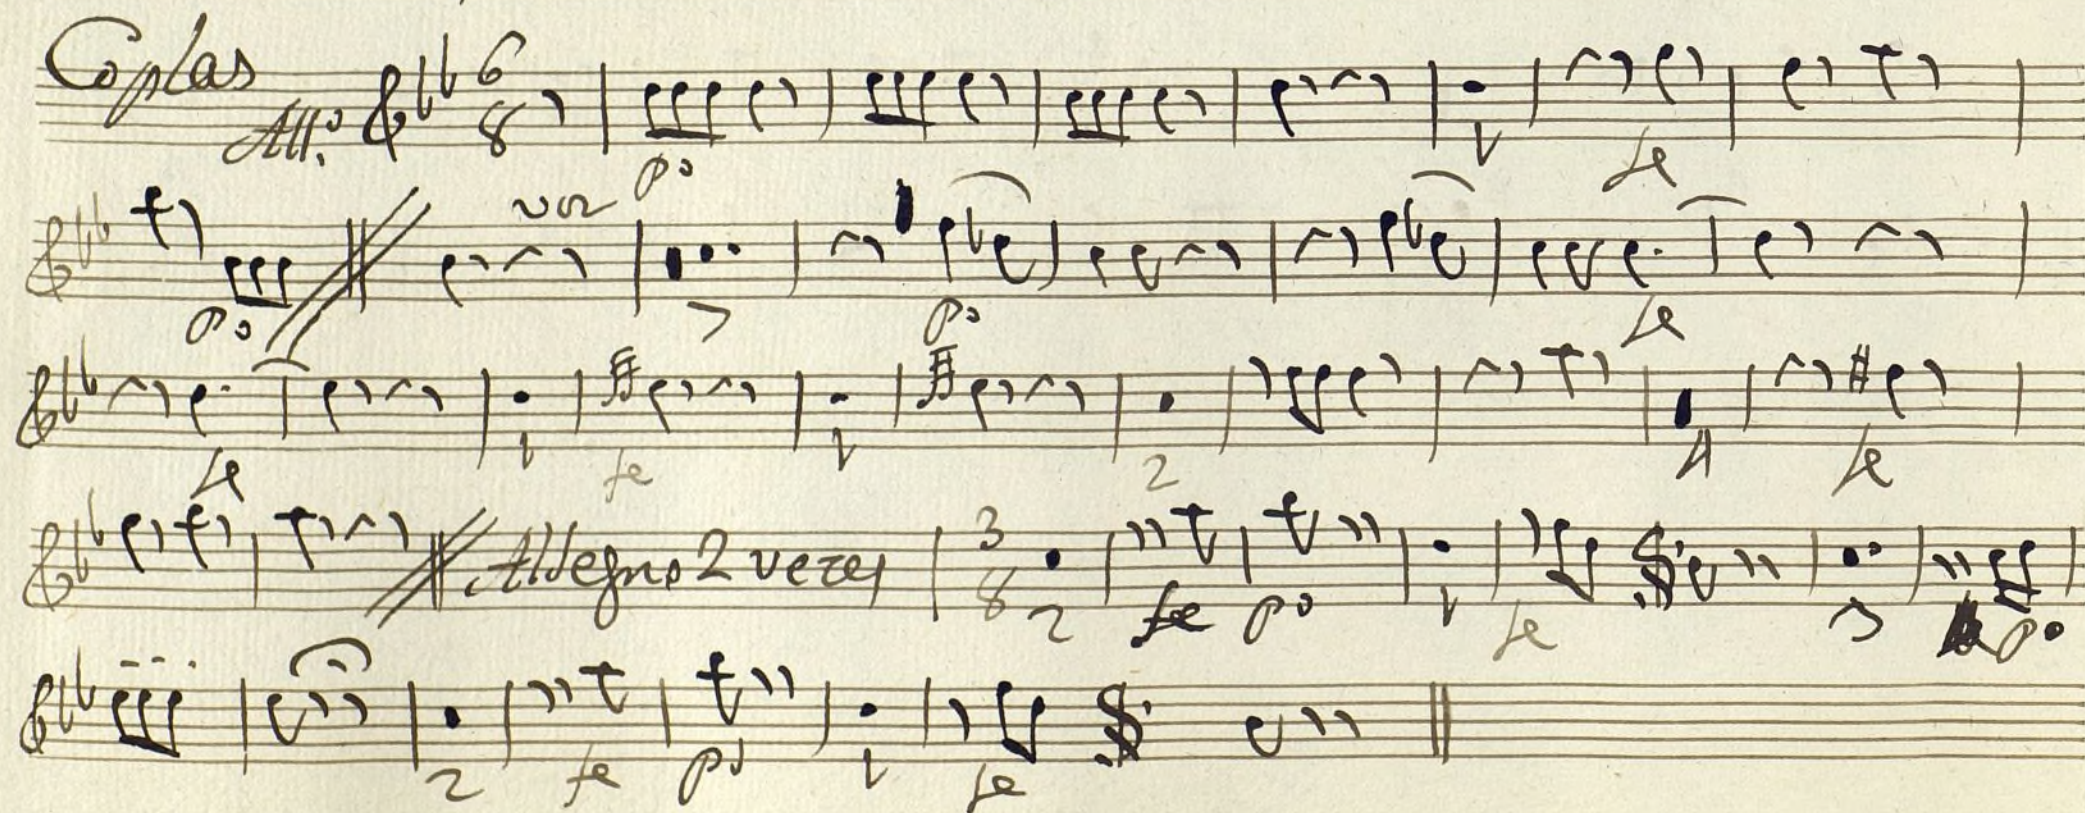 Coplas
All.º 6 8
pº 1 fe
voz
pº 7 pº fe
fe 1 fe 1 2 4 fe
Al Segno 2 vezes 3 8
2 fe pº 1 fe 3 pº
2 fe pº 1 fe